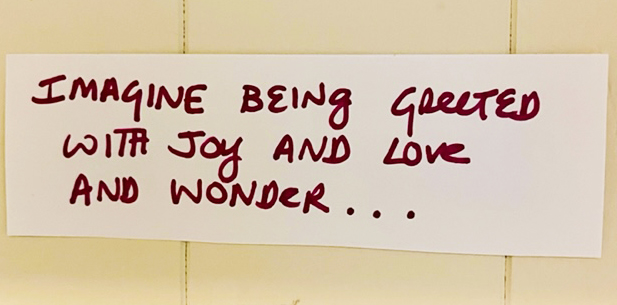 IMAGINE BEING GREETED
WITH JOY AND LOVE
AND WONDER...